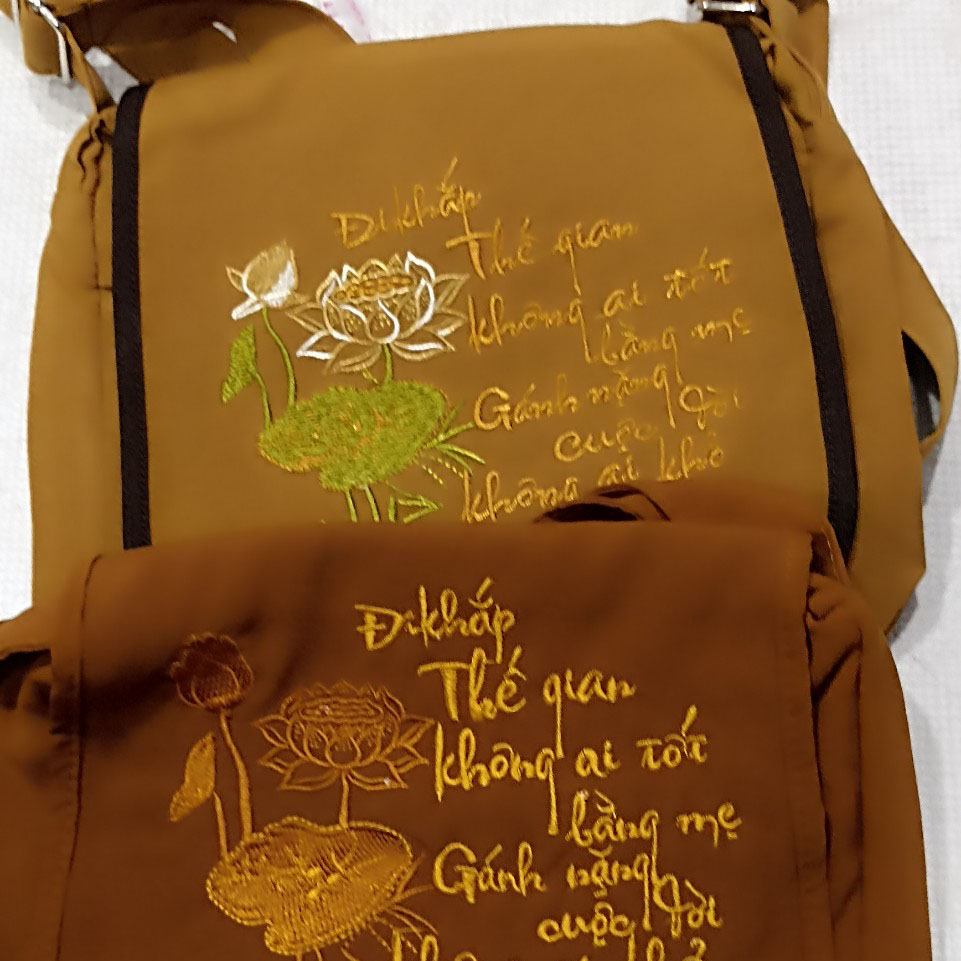 Đi khắp
Thế gian
không ai tốt
bằng mẹ
Gánh nặng
cuộc đời
không ai khổ
Đi khắp
Thế gian
không ai tốt
bằng mẹ
Gánh nặng
cuộc đời